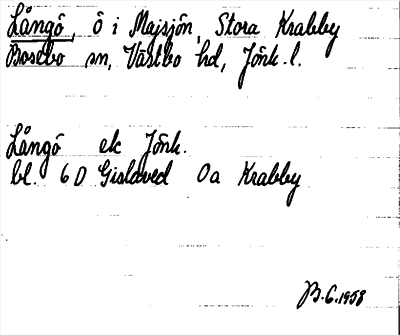 Långö, ö i Majsjön, Stora Krabby
Bosebo sn, Västbo hd, Jönk. l.
Långö ek Jönk.
bl. 6 D Gislaved 0a Krabby
B.G. 1958